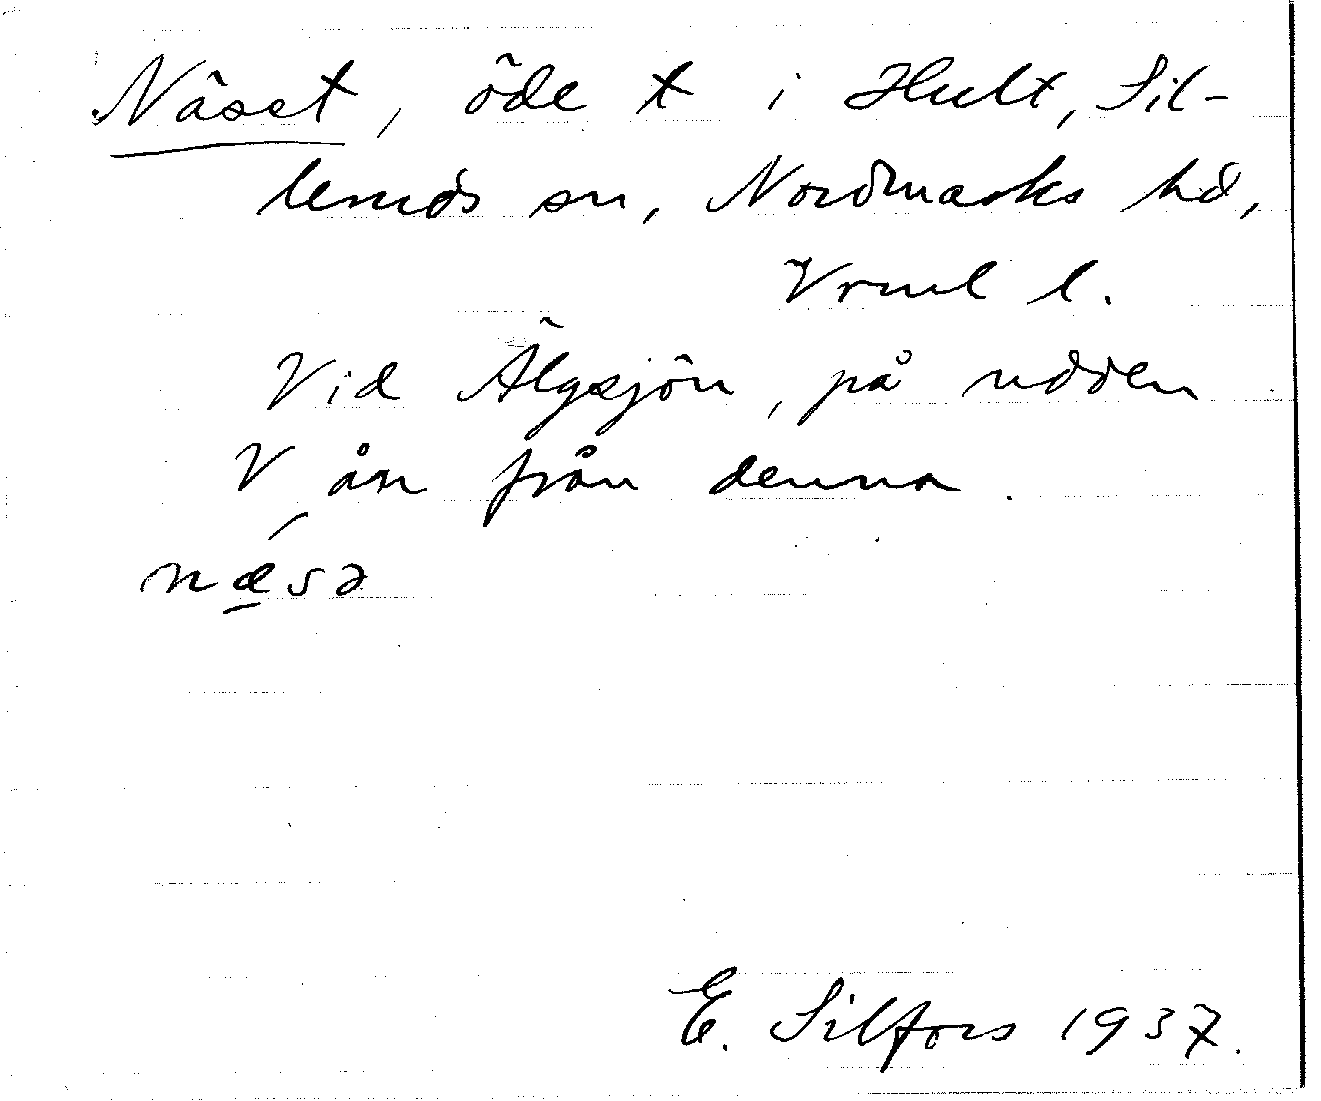 Näset, öde t i Hult, Sil-
leruds sn, Nordmarks hd,
Vrml l.
Vid Älgsjön, på udden
V om från denna.
nǽ̱sə
E. Silfors 1937.